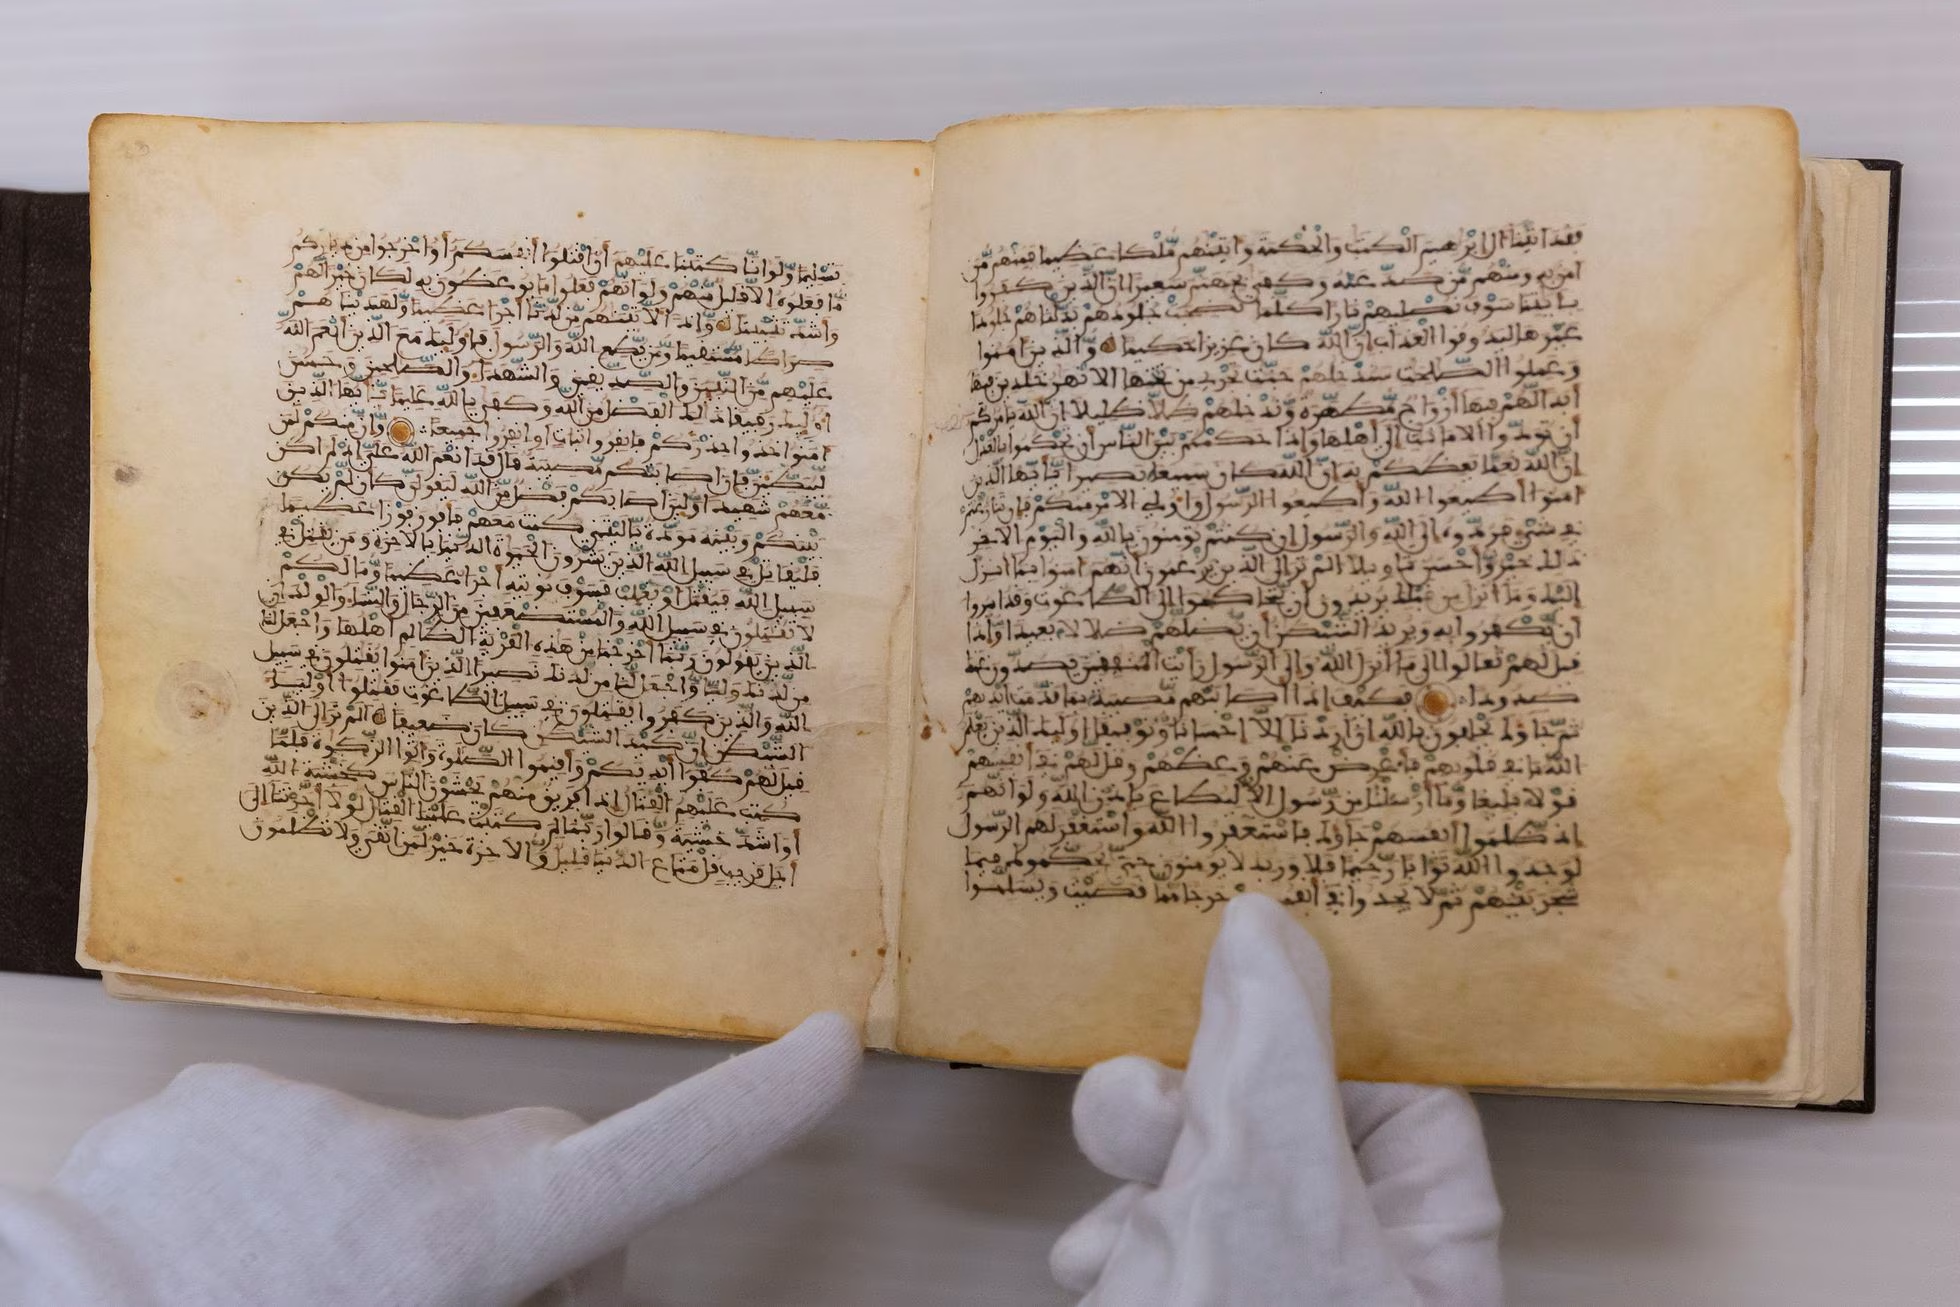 فقد اتينا ال ابرهيم الكتب والحكمة واتينهم ملكا عظيما فمنهم من
امن به ومنهم من صد عنه وكفى بجهنم سعيرا ان الذين كفروا
بايتنا سوف نصليهم نارا كلما نضجت جلودهم بدلناهم جلودا
غيرها ليذوقوا العذاب ان الله كان عزيزا حكيما والذين امنوا
وعملوا الصلحت سندخلهم جنت تجري من تحتها الانهر خلدين فيها
ابدا لهم فيها ازواج مطهرة وندخلهم ظلا ظليلا ان الله يامركم
ان تودوا الامانات الى اهلها واذا حكمتم بين الناس ان تحكموا بالعدل
ان الله نعما يعظكم به ان الله كان سميعا بصيرا يايها الذين
امنوا اطيعوا الله واطيعوا الرسول واولي الامر منكم فان تنازعتم
في شيء فردوه الى الله والرسول ان كنتم تومنون بالله واليوم الاخر
ذلك خير واحسن تاويلا الم تر الى الذين يزعمون انهم امنوا بما انزل
اليك وما انزل من قبلك يريدون ان يتحاكموا الى الطاغوت وقد امروا
ان يكفروا به ويريد الشيطن ان يضلهم ضلالا بعيدا واذا
قيل لهم تعالوا الى ما انزل الله والى الرسول رايت المنفقين يصدون عنك
صدودا فكيف اذا اصابتهم مصيبة بما قدمت ايديهم
ثم جاوك يحلفون بالله ان اردنا الا احسانا وتوفيقا اوليك الذين يعلم
الله ما في قلوبهم فاعرض عنهم وعظهم وقل لهم في انفسهم
قولا بليغا وما ارسلنا من رسول الا ليطاع باذن الله ولو انهم
اذ ظلموا انفسهم جاوك فاستغفروا الله واستغفر لهم الرسول
لوجدوا الله توابا رحيما فلا وربك لا يومنون حتى يحكموك فيما
شجر بينهم ثم لا يجدوا في حرجا مما قضيت ويسلموا
تسليما ولو انا كتبنا عليهم ان اقتلوا انفسكم او اخرجوا من دياركم
ما فعلوه الا قليل منهم ولو انهم فعلوا ما يوعظون به لكان خيرا لهم
واشد تثبيتا واذا لاتينهم من لدنا اجرا عظيما ولهدينهم
صراطا مستقيما ومن يطع الله والرسول فاوليك مع الذين انعم الله
عليهم من النبيين والصديقين والشهداء والصالحين وحسن
اوليك رفيقا ذلك الفضل من الله وكفى بالله عليما يايها الذين
امنوا خذوا حذركم فانفروا ثبات او انفروا جميعا وان منكم لمن
ليبطين فان اصابتكم مصيبة قال قد انعم الله علي اذ لم اكن
معهم شهيدا ولين اصابكم فضل من الله ليقولن كان لم يكن
بينكم وبينه مودة ياليتني كنت معهم فافوز فوزا عظيما
فليقاتل في سبيل الله الذين يشرون الحيوة الدنيا بالاخرة ومن يقتل في
سبيل الله فيقتل او يغلب فسوف نوتيه اجرا عظيما وما لكم
لا تقتلون في سبيل الله والمستضعفين من الرجال والنساء والولدان
الذين يقولون ربنا اخرجنا من هذه القرية الظالم اهلها واجعل لنا
من لدنك وليا واجعل لنا من لدنك نصيرا الذين امنوا يقتلون في سبيل
الله والذين كفروا يقتلون في سبيل الطاغوت فقتلوا اولياء
الشيطن ان كيد الشيطن كان ضعيفا الم تر الى الذين
قيل لهم كفوا ايديكم واقيموا الصلوة واتوا الزكوة فلما
كتب عليهم القتال اذا فريق منهم يخشون الناس كخشية الله
او اشد خشية وقالوا ربنا لم كتبت علينا القتال لولا اخرتنا الى
اجل قريب قل متاع الدنيا قليل والاخرة خير لمن اتقى ولا تظلمون